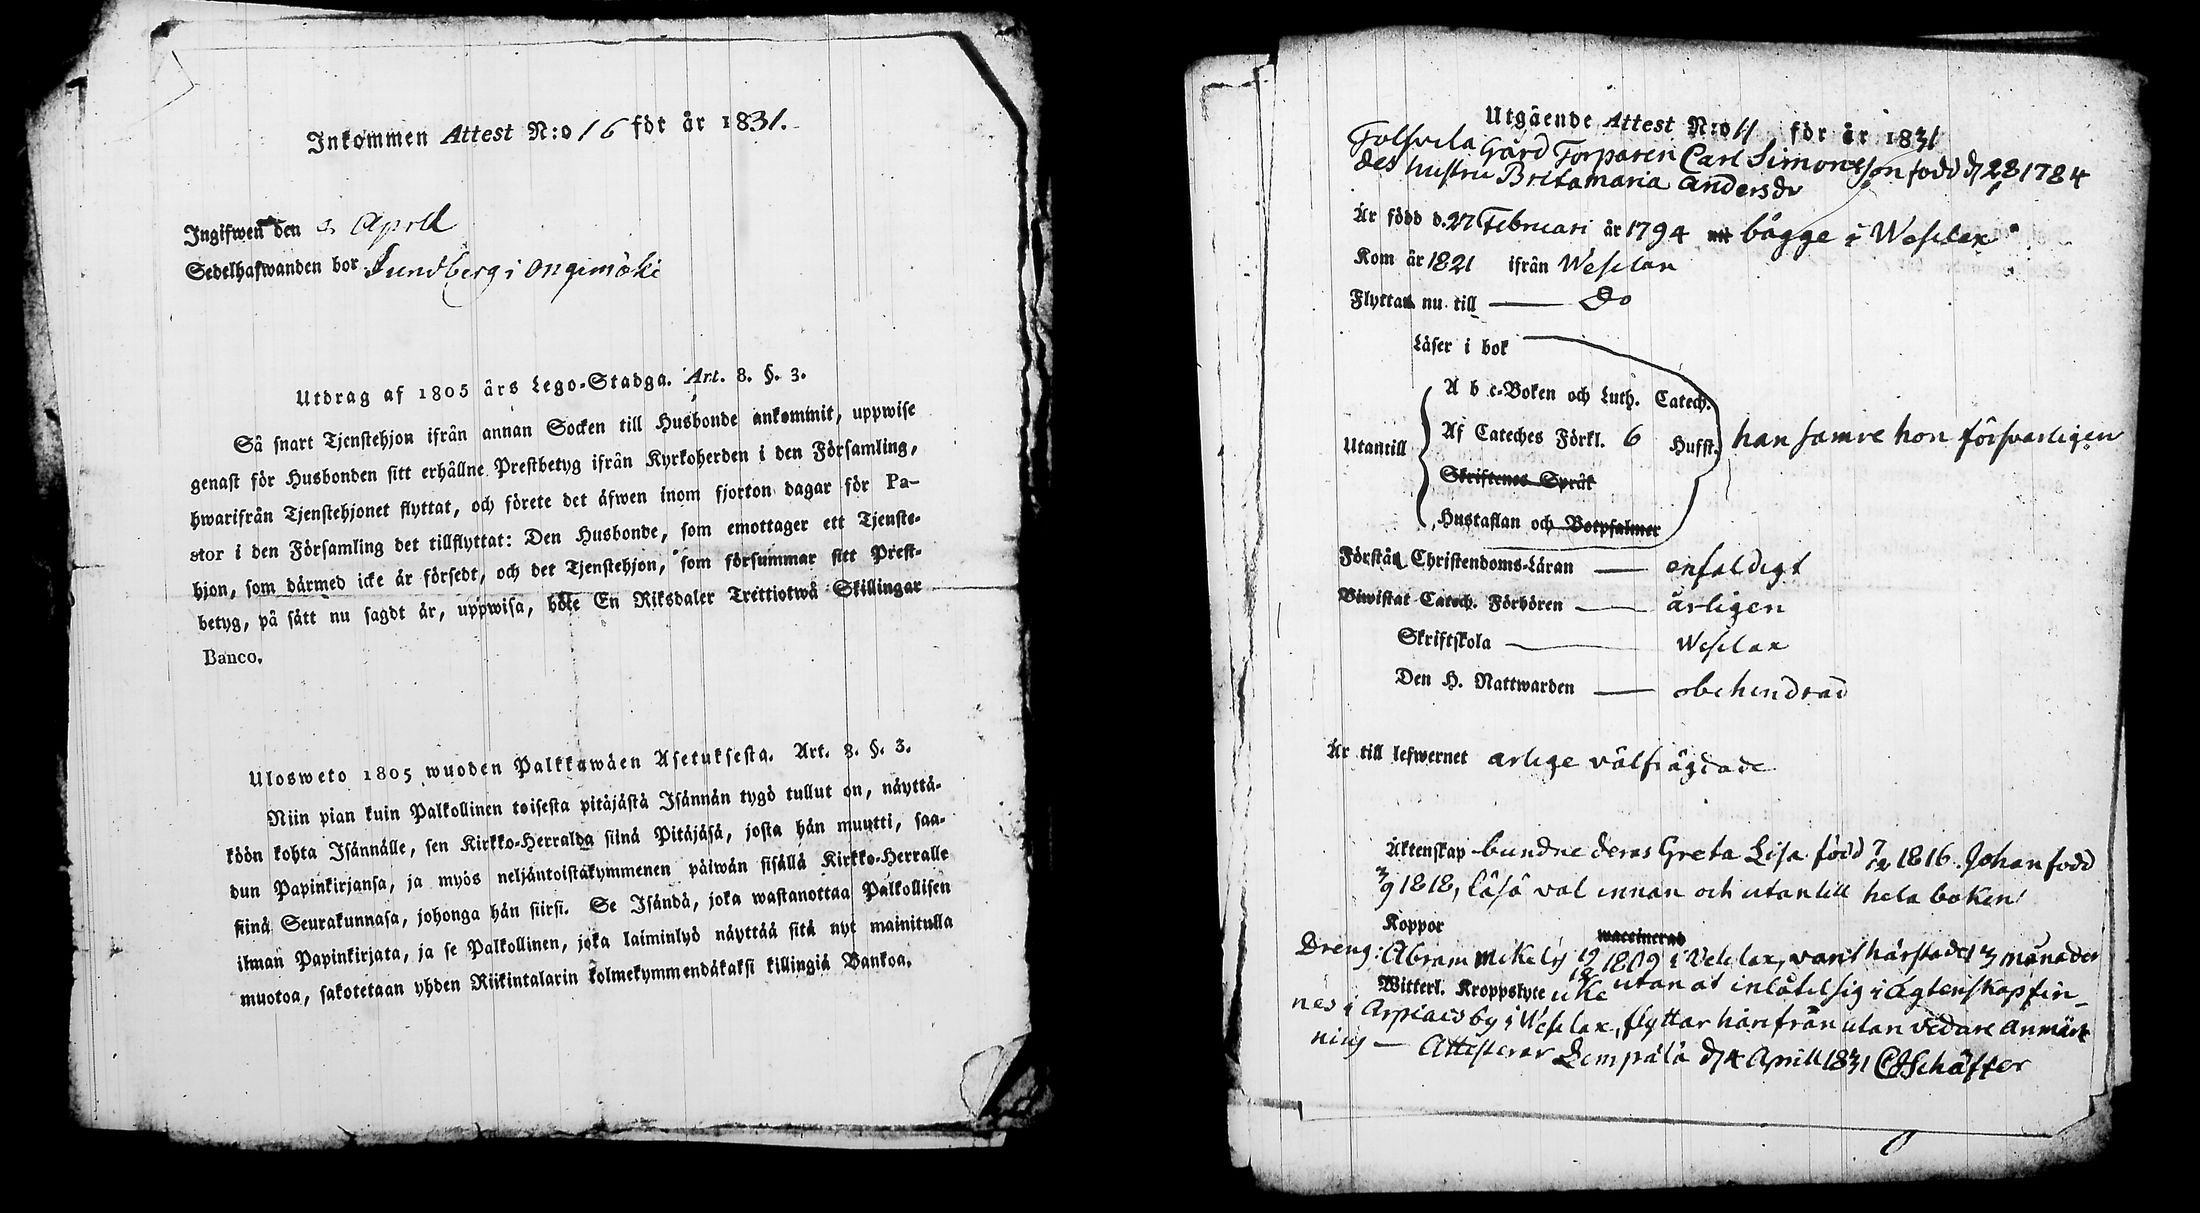 Inkommen Attest N:o 16 för år 1831.
Ingifwen den 3 April
Sedelhafwanden bor Sundberg i Ongemäki
Utdrag af 1805 års Lego-Stadga. Art. 8. §. 3.
Så snart Tjenstehjon ifrån annan Socken till Husbonde ankommit, uppwise
genast för Husbonden sitt erhållne Prestbetyg ifrån Kyrkoherden i den Församling,
hwarifrån Tjenstehjonet flyttat, och förete det äfwen inom fjorton dagar för Pa-
stor i den Församling det tillflyttat: Den Husbonde, som emottager ett Tjenste-
hjon, som därmed icke är försedt, och det Tjenstehjon, som försummar sitt Prest-
betyg, på sätt nu sagdt är, uppwisa, böte En Riksdaler Trettiotwå Skillingar
Banco.
Ulosweto 1805 wuoden Palkkawäen Asetuksesta. Art. 8. §. 3.
Niin pian kuin Palkollinen toisesta pitäjästä Isännän tygö tullut on, näyttä-
köön kohta Isännälle, sen Kirkko-Herralda siinä Pitäjäsä, josta hän muutti, saa-
dun Papinkirjansa, ja myös neljäntoistakymmenen päiwän sisällä Kirkko-Herralle
siinä Seurakunnasa, johonga hän siirsi. Se Isändä, joka wastanottaa Palkollisen
ilman Papinkirjata, ja se Palkollinen, joka laiminlyö näyttää sitä nyt mainitulla
muotoa, sakotetaan yhden Riikintalarin kolmekymmendäkaksi killingiä Bankoa.
Utgående Attest N:o 11 för år 1831
Gård Torparen Carl Simonsson född d 28 1784
des hustru Britamaria Andersdr
Är född d. 27 Februari år 1794 bägge i Wesilax
Kom år 1821 ifrån Wesilax
Flyttar nu till — Do
Läser i bok
A b c-Boken och Luth. Catech.
Utantill Af Cateches Förkl. 6 Hufst. han samre hon försvarligen
Skriftenes Språk
Hustaflan och Botpsalmer
Förstå Christendoms-Läran — enfaldigt
Biwistat Catech. Förhören — årligen
Skriftskola — Wesilax
Den H. Nattwarden — obehindrad
Är till lefwernet ärlige välfrägdade
Äktenskap bundne deras Greta Lisa född 7/12 1816. Johan född
3/9 1818, läsa val innan och utantill hela boken
Koppor vaccinerad
Dreng: Abram Mikels 19/12 1809 i Vesilax, varit härstädes 3 månader
Witterl. Kroppslyte icke utan at inlåtit sig i ägtenskap fin-
nes i Arpiais by i Wesilax, flyttar härifrån utan vidare anmärk
ning — Attesterar Lempälä d 4 April 1831 Schäffer